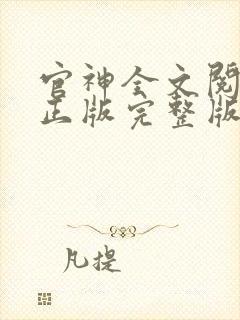 官神全文阅
正版完整版
凡提